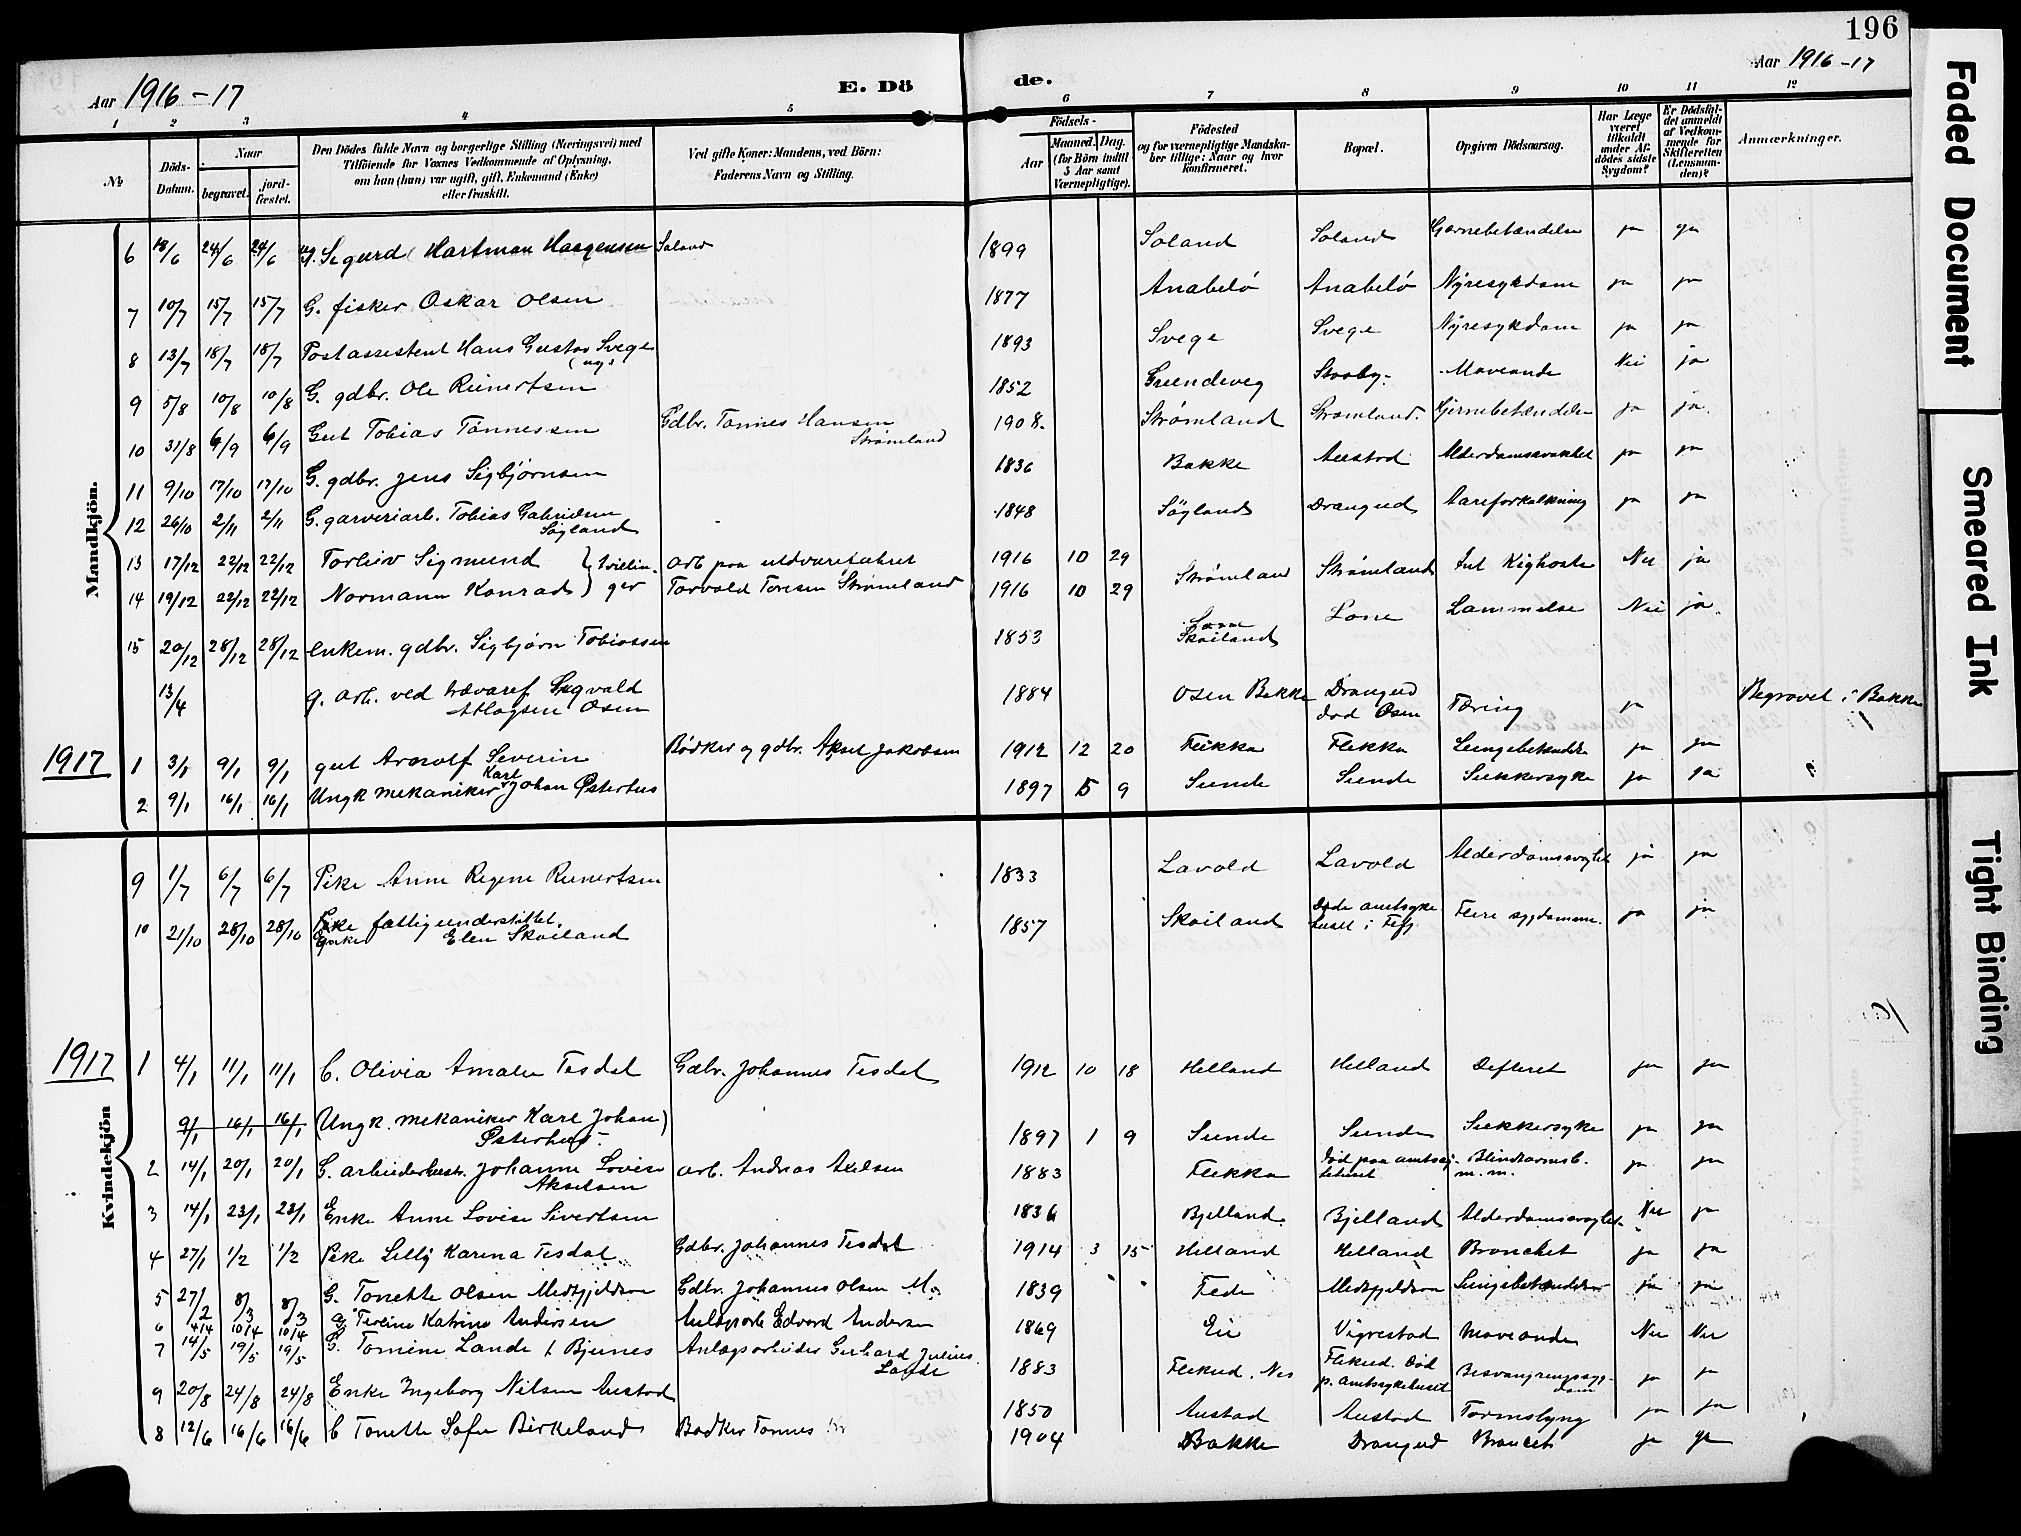 196
Aar 1916-17
E. Dö
de.
Aar 1916-17
1 2 3 4 5 6 7 8 9 10 11 12
No
Döds-Datum.
Naar
begravet.
jord-fæstet.
Den Dödes fulde Navn og borgerlige Stilling (Næringsvei) med
Tilföiende for Voxnes Vedkommende af Oplysning,
om han (hun) var ugift, gift, Enkemand (Enke)
eller fraskilt.
Ved gifte Koner: Mandens, ved Börn:
Faderens Navn og Stilling.
Födsels-
Aar
Maaned. Dag.
(for Börn indtil
5 Aar samt
Værnepligtige).
Födested
og for værnepligtige Mandska-
ber tillige: Naar og hvor
konfirmeret.
Bopæl.
Opgiven Dödsaarsag.
Har Læge
været
tilkaldt
under Af-
dödes sidste
Sygdom?
Er Dödsfal-
det anmeldt
af Vedkom-
mende for
Skifteretten
(Lensman-
den)?
Anmærkninger.
Mandkjön.
6 18/6 24/6 24/6 ug. Sigurd Hartman Haagensen Soland 1899 Soland Soland ja ja
7 10/7 15/7 15/7 G. fisker Oskar Olsen 1877 Anabelø Anabelø Nyresykdom ja ja
8 13/7 18/7 18/7 Postassistent Hans Gustav Svege (ug) 1893 Svege Svege Nyresykdom ja ja
9 5/8 10/8 10/8 G. gdbr. Ole Reinertsen 1852 Maveonde Nei ja
10 31/8 6/9 6/9 Gut Tobias Tönnessen Gdbr. Tønnes Hansen Strømland 1908 Strømland Strømland Hjernebetændelse ja ja
11 9/10 17/10 17/10 G. gdbr. Jens Sigbjørnsen 1836 Bakke Austad Alderdomssvakhet ja ja
12 26/10 2/11 2/11 G. garveriarb. Tobias Gabrielsen Søyland 1848 Søyland Drangeid Aareforkalkning ja ja
13 17/12 22/12 22/12 Torleiv Sigmund } Tvillin- arb paa uldvarefabrik 1916 10 29 Strømland Strømland Int. Kighoste Nei ja
14 19/12 22/12 22/12 Normann Konrad } ger Torvald Toresen Strømland 1916 10 29
15 20/12 28/12 28/12 enkem. gdbr. Sigbjørn Tobiassen 1853 Skoiland Lone Lammelse Nei ja
13/4 g. arb. ved trævaref Sigvald Atlagsen Osen 1884 Osen Bakke Drangeid død Osen Tæring ja Begravet i Bakke
1917
1 3/1 9/1 9/1 gut Arnolf Severin Bødker og gdbr. Aksel Jakobsen 1912 12 20 Flikka Flikka Lungebetændelse ja ja
2 9/1 16/1 16/1 Ungk mekaniker Karl Johan Østerhus 1897 5 9 Sunde Sunde Sukkersyke ja ja
Kvindekjön
9 1/7 6/7 6/7 Pike Anne Regine Reinertsen 1833 Lavold Lavold Alderdomssvaghet ja ja
10 21/10 28/10 28/10 Enke fattigunderstøttet. Elen Skoiland 1857 Skoiland Døde amtsyke huset i Flekkefj Flere sygdomme. ja ja
1917
1 4/1 11/1 11/1 b. Olivia Amalie Tesdal Gdbr. Johannes Tesdal 1912 10 18 Helland Helland Difteret ja ja
9/1 16/1 16/1 (Ungk. mekaniker Karl Johan) Østerhus 1897 1 9 Sunde Sunde Sukkersyke ja ja
2 14/1 20/1 20/1 G. arbeiderhustr. Johanne Lovise Akselsen arb. Andreas Axelsen 1883 Flikka død paa amtssykehuset Blindtarmsb. m.m. ja ja
3 14/1 23/1 23/1 Enke Anne Lovise Sivertsen 1836 Bjelland Bjelland Alderdomssvaghet Nei ja
4 27/1 1/2 1/2 Pike Lilly Karina Tesdal Gdbr. Johannes Tesdal 1914 3 15 Helland Helland Bronchit ja ja
5 27/2 8/3 8/3 G. Tonette Olsen Midtfjeldsaa Gdbr. Johannes Olsen M. 1839 Fede Midtfjeldsaa Lungebetændelse ja ja
6 4/4 10/4 10/4 G. Katrine Andersen Edvard Andersen 1869 Eie Vigrestad Maveonde Nei Nei
7 14/5 19/5 19/5 G. Tomine Lande f Bjunes Anlægsarbeider Gerhard Julius Lande 1883 Flikeid. Nes Flikeid. Død p. amtssykehuset Besvangringssygdom ja ja
9 20/8 24/8 24/8 Enke Ingeborg Nilsen Austad 1850 Austad Austad Tarmslyng ja ja
8 12/6 16/6 16/6 b Tonette Sofie Birkeland Bødker Tønnes 1904 Bakke Drangeid Broncit ja ja
Faded Document
Smeared Ink
Tight Binding